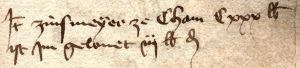 It zinsmeyer ze Cham Cxxx lb
ist im gelonet iij lb d